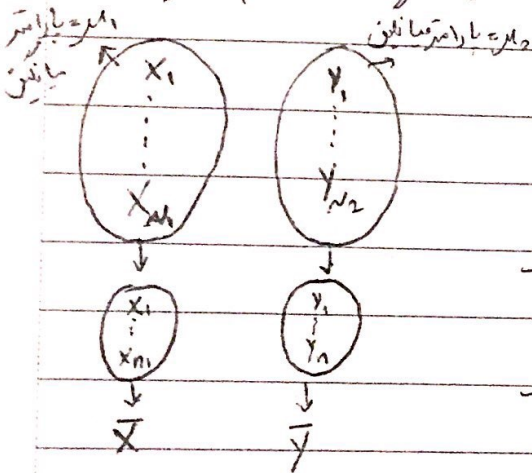 μ₁ = پارامتر میانگین
μ₂ = پارامتر میانگین
X₁ Y₁
⋮ ⋮
X_N₁ Y_N₂
x₁ y₁
⋮ ⋮
x_n₁ y_n
X̄ Ȳ